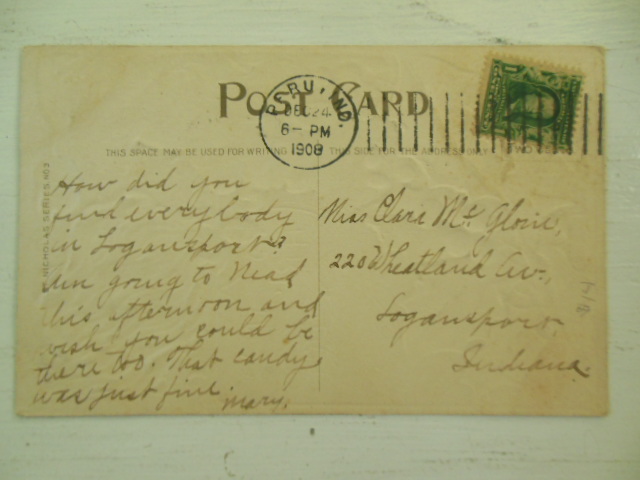 POST CARD
PERU, IND.
DEC 24
6 - PM
1908
THIS SPACE MAY BE USED FOR WRITING
THIS SIDE FOR THE ADDRESS ONLY
NICHOLAS SERIES NO 3
How did you
find everybody
in Logansport?
Am going to Mead
this afternoon and
wish you could be
there too. That candy
was just fine.
Mary.
Miss Clara
220 Wheatland Av.,
Logansport,
Indiana.